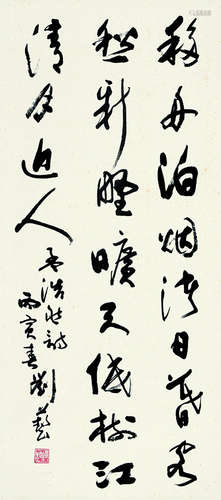 移舟泊烟渚日暮客
愁新野旷天低树江
清月近人
孟浩然诗
丙寅春刘艺